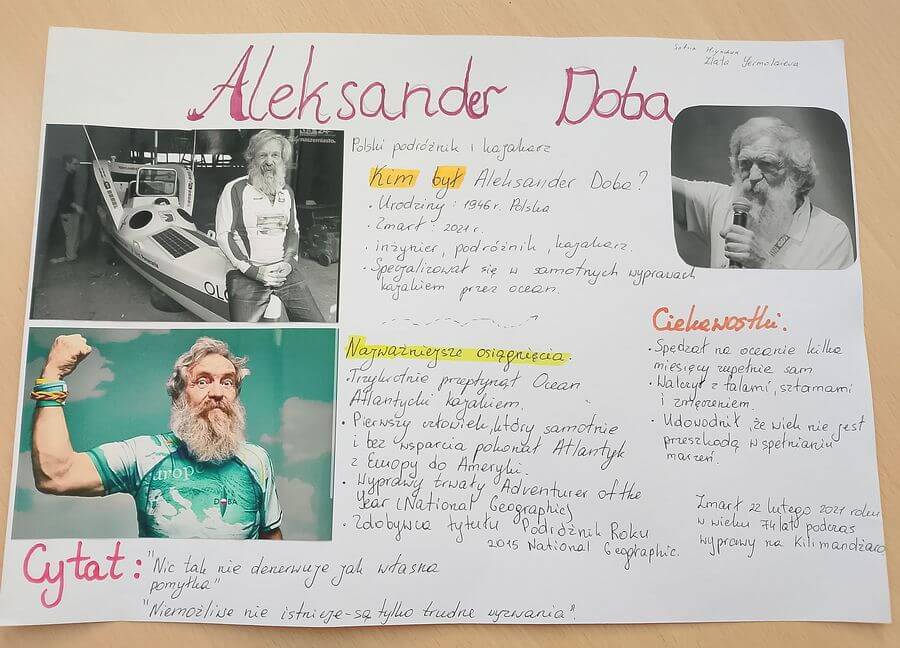 Zlata Yermolaieva
Aleksander Doba
Polski podróżnik i kajakarz
Kim był Aleksander Doba?
• Urodziny : 1946 r. Polska
• Zmarł : 2021 r.
• inżynier, podróżnik, kajakarz.
• Specjalizował się w samotnych wyprawach
kajakiem przez ocean.
OLO
Najważniejsze osiągnięcia.
• Trzykrotnie przepłynął Ocean
Atlantycki kajakiem.
• Pierwszy człowiek, który samotnie
i bez wsparcia pokonał Atlantyk
z Europy do Ameryki.
• Wyprawy trwały Adventurer of the
Year (National Geographic)
• Zdobywca tytułu Podróżnik Roku
2015 National Geographic.
Ciekawostki.
• Spędzał na oceanie kilka
miesięcy zupełnie sam
• Walczył z falami, sztormami
i zmęczeniem.
• Udowodnił, że wiek nie jest
przeszkodą w spełnianiu
marzeń.
Zmarł 22 lutego 2021 roku
w wieku 74 lat podczas
wyprawy na Kilimandżaro
Europe
DOBA
Cytat: "Nic tak nie denerwuje jak własna
pomyłka"
"Niemożliwe nie istnieje-są tylko trudne wyzwania".